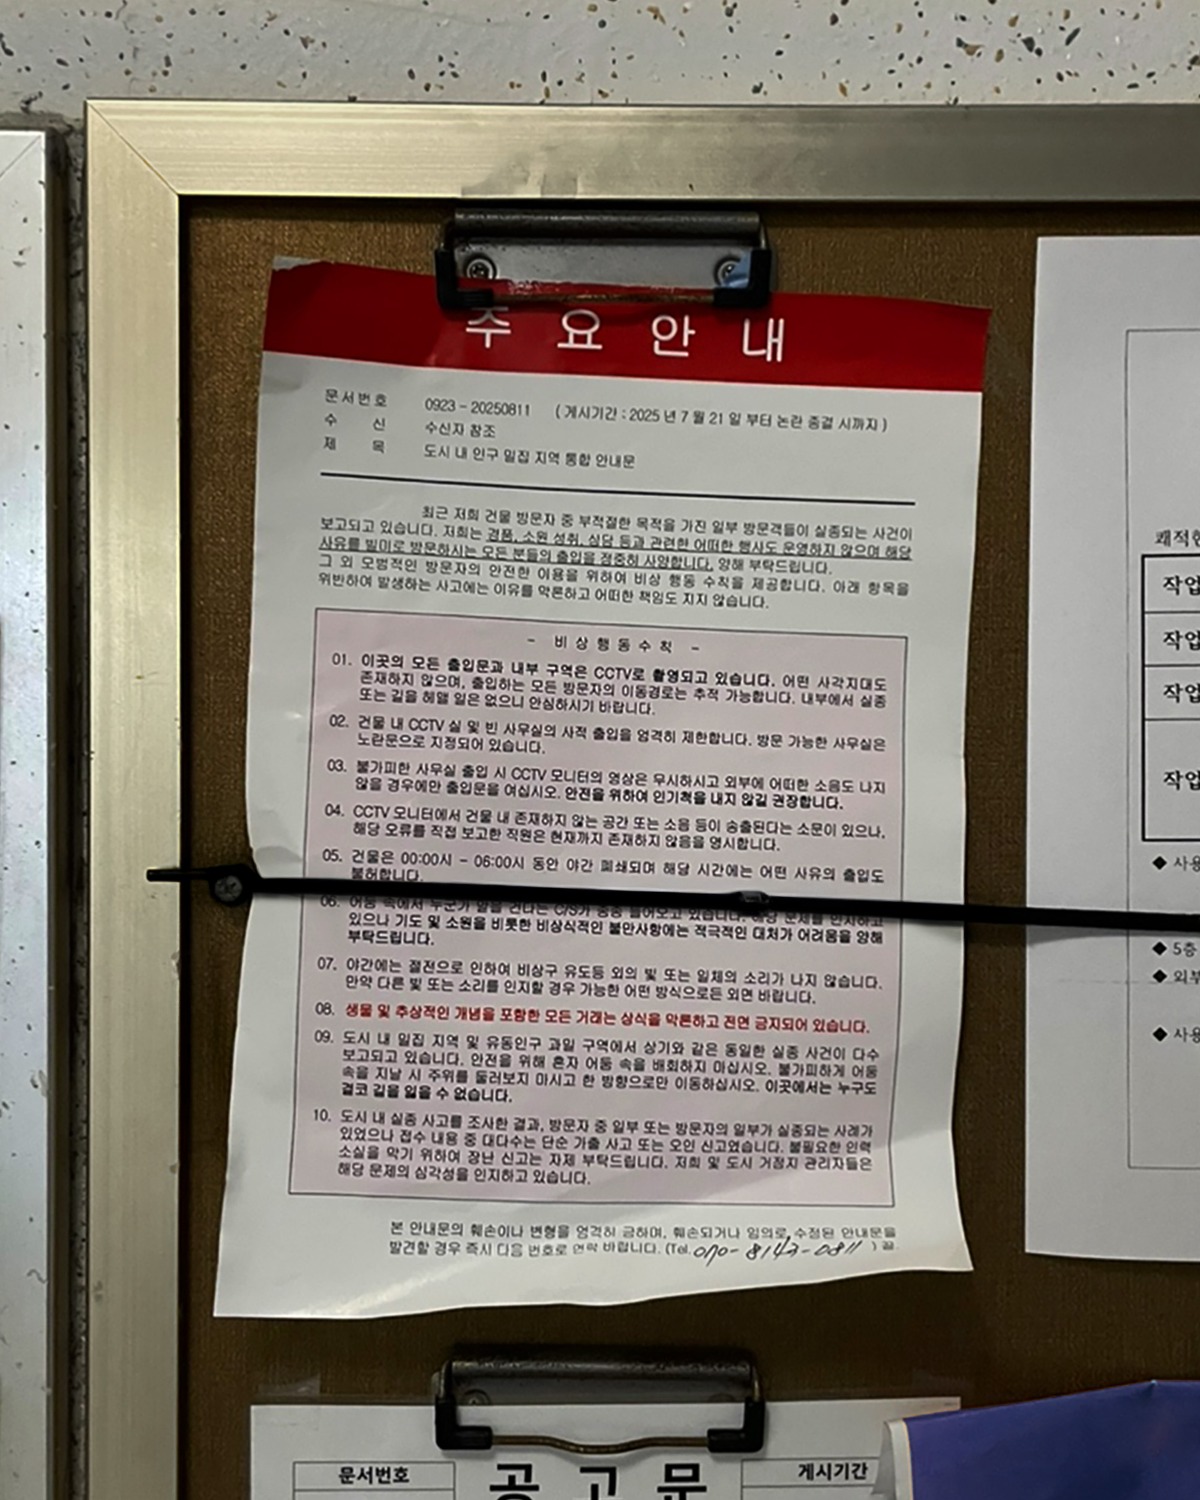 주 요 안 내
문서번호 0923 - 20250811 ( 게시기간 : 2025 년 7 월 21 일 부터 논란 종결 시까지 )
수 신 수신자 참조
제 목 도시 내 인구 밀집 지역 통합 안내문
최근 저희 건물 방문자 중 부적절한 목적을 가진 일부 방문객들이 실종되는 사건이
보고되고 있습니다. 저희는 경품, 소원 성취, 상담 등과 관련한 어떠한 행사도 운영하지 않으며 해당
사유를 빌미로 방문하시는 모든 분들의 출입을 정중히 사양합니다. 양해 부탁드립니다.
그 외 모범적인 방문자의 안전한 이용을 위하여 비상 행동 수칙을 제공합니다. 아래 항목을
위반하여 발생하는 사고에는 이유를 막론하고 어떠한 책임도 지지 않습니다.
- 비 상 행 동 수 칙 -
01. 이곳의 모든 출입문과 내부 구역은 CCTV로 촬영되고 있습니다. 어떤 사각지대도
존재하지 않으며, 출입하는 모든 방문자의 이동경로는 추적 가능합니다. 내부에서 실종
또는 길을 헤맬 일은 없으니 안심하시기 바랍니다.
02. 건물 내 CCTV 실 및 빈 사무실의 사적 출입을 엄격히 제한합니다. 방문 가능한 사무실은
노란문으로 지정되어 있습니다.
03. 불가피한 사무실 출입 시 CCTV 모니터의 영상은 무시하시고 외부에 어떠한 소음도 나지
않을 경우에만 출입문을 여십시오. 안전을 위하여 인기척을 내지 않길 권장합니다.
04. CCTV 모니터에서 건물 내 존재하지 않는 공간 또는 소음 등이 송출된다는 소문이 있으나,
해당 오류를 직접 보고한 직원은 현재까지 존재하지 않음을 명시합니다.
05. 건물은 00:00시 - 06:00시 동안 야간 폐쇄되며 해당 시간에는 어떤 사유의 출입도
불허합니다.
06. 어둠 속에서 누군가 말을 건다는 C/S가 종종 들어오고 있습니다. 해당 문제를 인지하고
있으나 기도 및 소원을 비롯한 비상식적인 불만사항에는 적극적인 대처가 어려움을 양해
부탁드립니다.
07. 야간에는 절전으로 인하여 비상구 유도등 외의 빛 또는 일체의 소리가 나지 않습니다.
만약 다른 빛 또는 소리를 인지할 경우 가능한 어떤 방식으로든 외면 바랍니다.
08. 생물 및 추상적인 개념을 포함한 모든 거래는 상식을 막론하고 전면 금지되어 있습니다.
09. 도시 내 밀집 지역 및 유동인구 과밀 구역에서 상기와 같은 동일한 실종 사건이 다수
보고되고 있습니다. 안전을 위해 혼자 어둠 속을 배회하지 마십시오. 불가피하게 어둠
속을 지날 시 주위를 둘러보지 마시고 한 방향으로만 이동하십시오. 이곳에서는 누구도
결코 길을 잃을 수 없습니다.
10. 도시 내 실종 사고를 조사한 결과, 방문자 중 일부 또는 방문자의 일부가 실종되는 사례가
있었으나 접수 내용 중 대다수는 단순 가출 사고 또는 오인 신고였습니다. 불필요한 인력
소실을 막기 위하여 장난 신고는 자제 부탁드립니다. 저희 및 도시 거점지 관리자들은
해당 문제의 심각성을 인지하고 있습니다.
본 안내문의 훼손이나 변형을 엄격히 금하며, 훼손되거나 임의로 수정된 안내문을
발견할 경우 즉시 다음 번호로 연락 바랍니다. (Tel. 070-8143-0811 ) 끝.
쾌적한
작업
작업
작업
작업
◆ 사용
◆ 5층
◆ 외부
◆ 사용
문서번호
공 고 문
게시기간